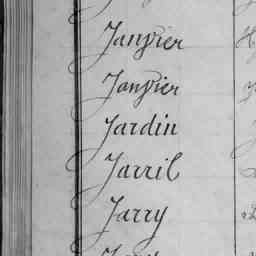 Janvier
Janvier
Jardin
Jarril
Jarry